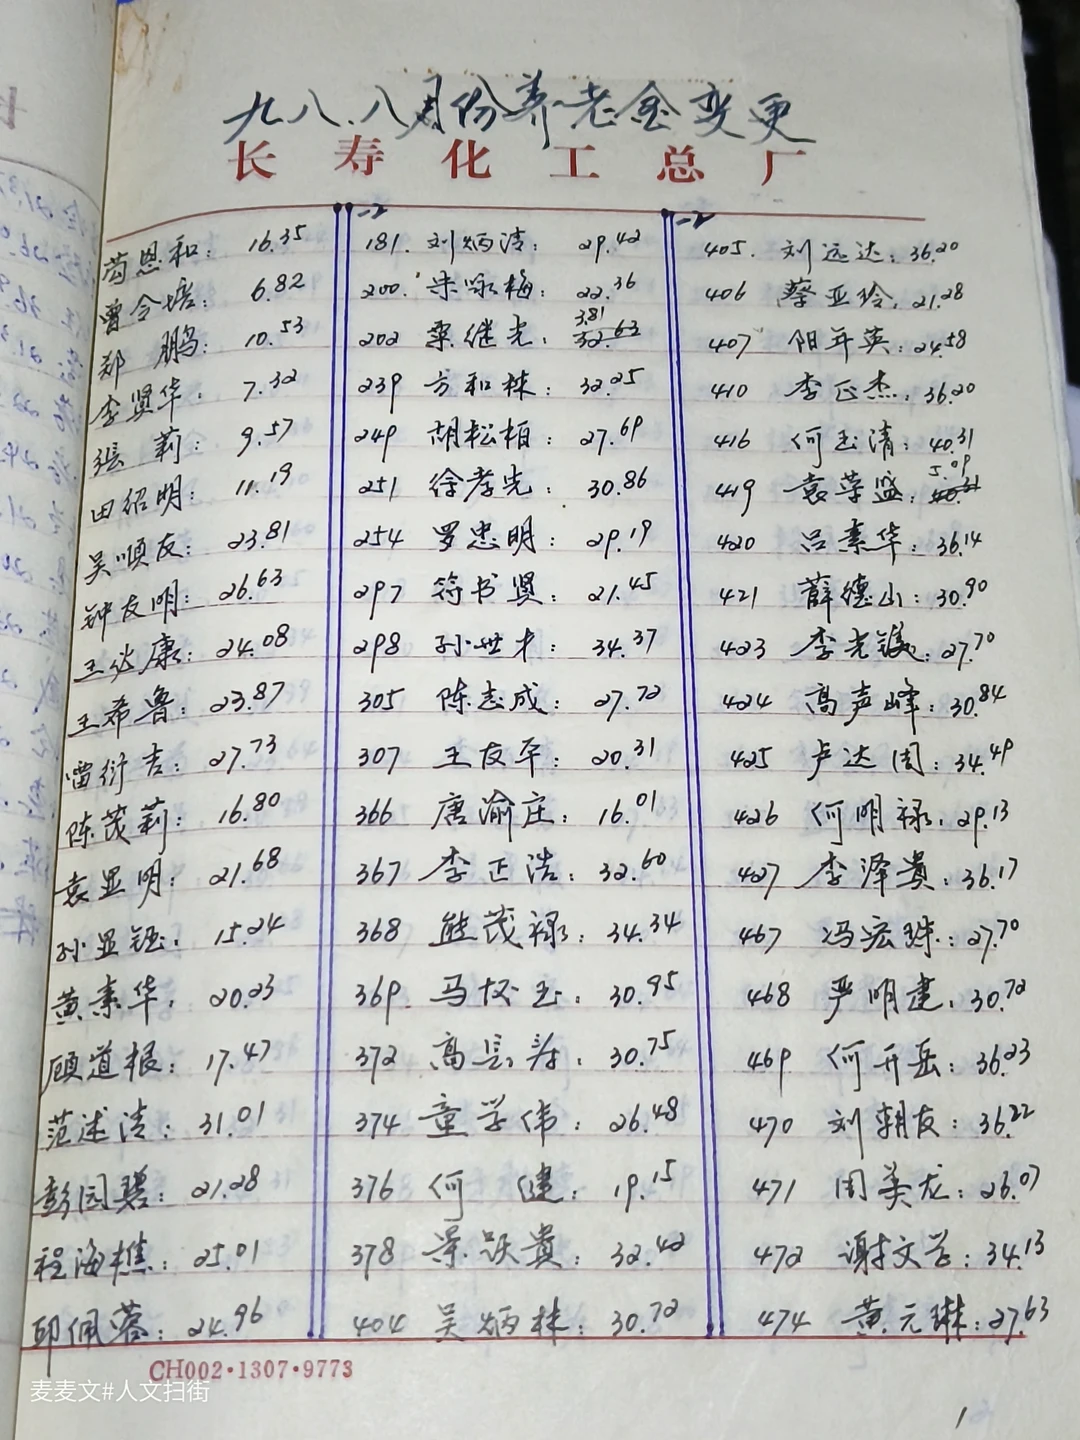 九八.八月份养老金变更
长寿化工总厂
芶恩和: 16.35
曾令培: 6.82
郑 鹏: 10.53
李贤华: 7.32
张 莉: 9.57
田绍明: 11.19
吴顺友: 23.81
钟友明: 26.63
王从康: 24.08
王希鲁: 23.87
雷衍吉: 27.73
陈茂莉: 16.80
袁显明: 21.68
孙显钰: 15.24
黄素华: 20.23
顾道根: 17.47
范述清: 31.01
彭园碧: 21.28
程海樵: 25.01
邱佩蓉: 24.96
-2
181. 刘炳清: 29.42
200. 朱咏梅: 22.36
202 栗继光: 3.81 32.63
239 方和林: 32.25
249 胡松柏: 27.69
251 徐孝先: 30.86
254 罗忠明: 29.19
297 符书贤: 21.45
298 孙世才: 34.37
305 陈志成: 27.72
307 王友军: 20.31
366 唐渝庄: 16.01
367 李正浩: 32.60
368 熊茂禄: 34.34
369 马怀玉: 30.95
372 高长寿: 30.75
374 童学伟: 26.48
376 何 健: 19.15
378 景跃贵: 32.42
404 吴炳林: 30.72
-2
405. 刘远达: 36.20
406 蔡亚玲: 21.28
407 阳年英: 24.58
410 李正杰: 36.20
416 何玉清: 40.31
419 袁荣盛: 5.09 40.31
420 吕素华: 36.14
421 薛德山: 30.90
423 李光镁: 27.70
424 高声峰: 30.84
425 卢达周: 34.49
426 何明禄: 29.13
427 李泽贵: 36.17
467 冯宏珠: 27.70
468 严明建: 30.72
469 何开岳: 36.23
470 刘朝友: 36.22
471 周美龙: 26.07
472 谢文学: 34.13
474 黄元琳: 27.63
CH002·1307·9773
麦麦文#人文扫街
1